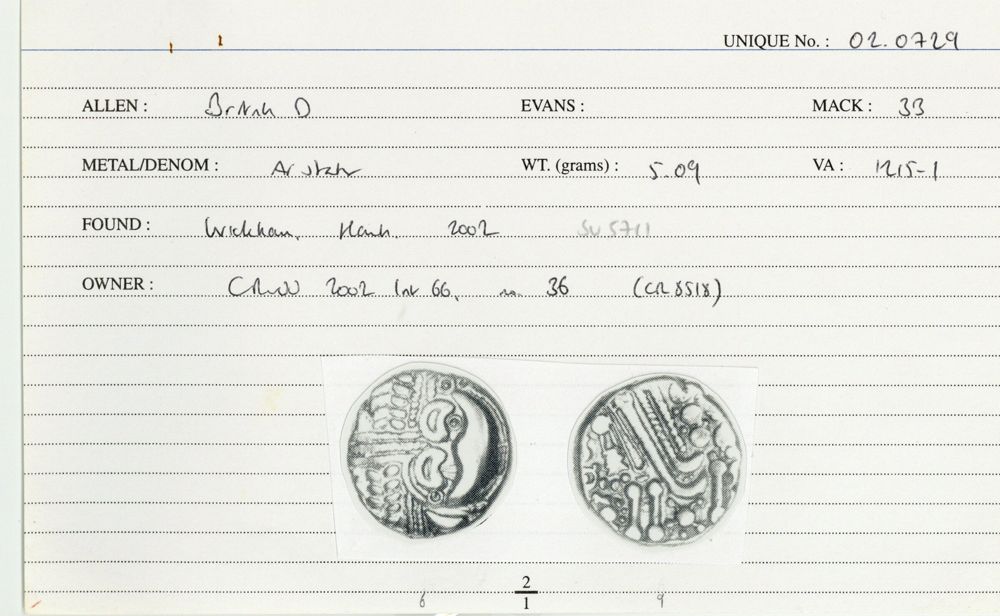 UNIQUE No. : 02.0729
ALLEN : British D EVANS : MACK : 33
METAL/DENOM : AV stater WT. (grams) : 5.09 VA : 1215-1
FOUND : Wickham, Hants. 2002 SU 5711
OWNER : 2002 66, no. 36 (CR 8518)
2
6 1 9